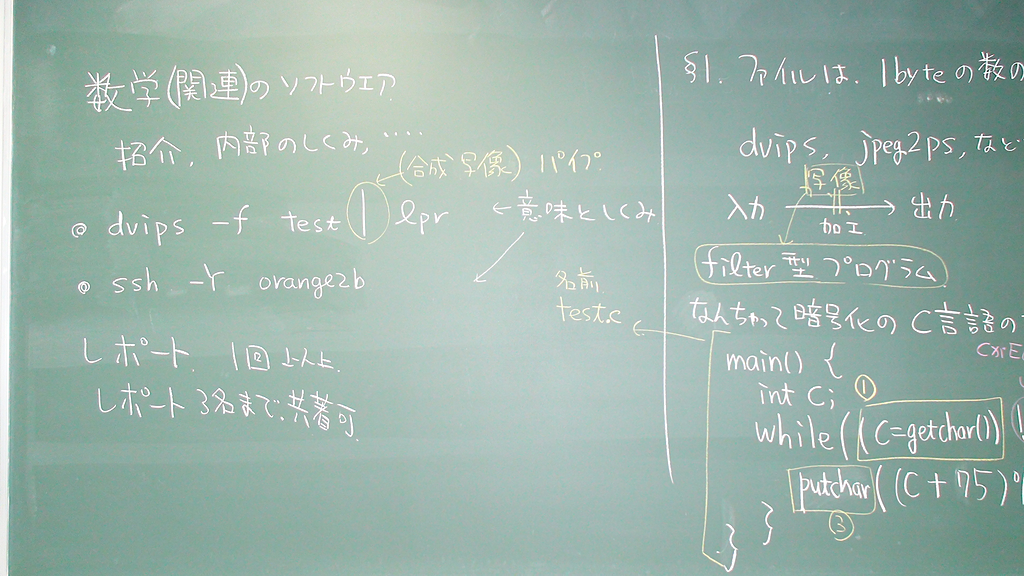 数学(関連)のソフトウエア
紹介、内部のしくみ、‥‥
(合成写像) パイプ
dvips -f test | lpr ← 意味としくみ
ssh -Y orange2b
レポート 1回以上
レポート 3名まで、共著可
§1. ファイルは、1byteの数の
dvips, jpeg2ps, など
写像
入力 → 出力
加工
filter型プログラム
なんちゃって暗号化のC言語の
名前
test.c
main() {
int C; ①
while((C=getchar())
putchar((C+75)%
③
}
}